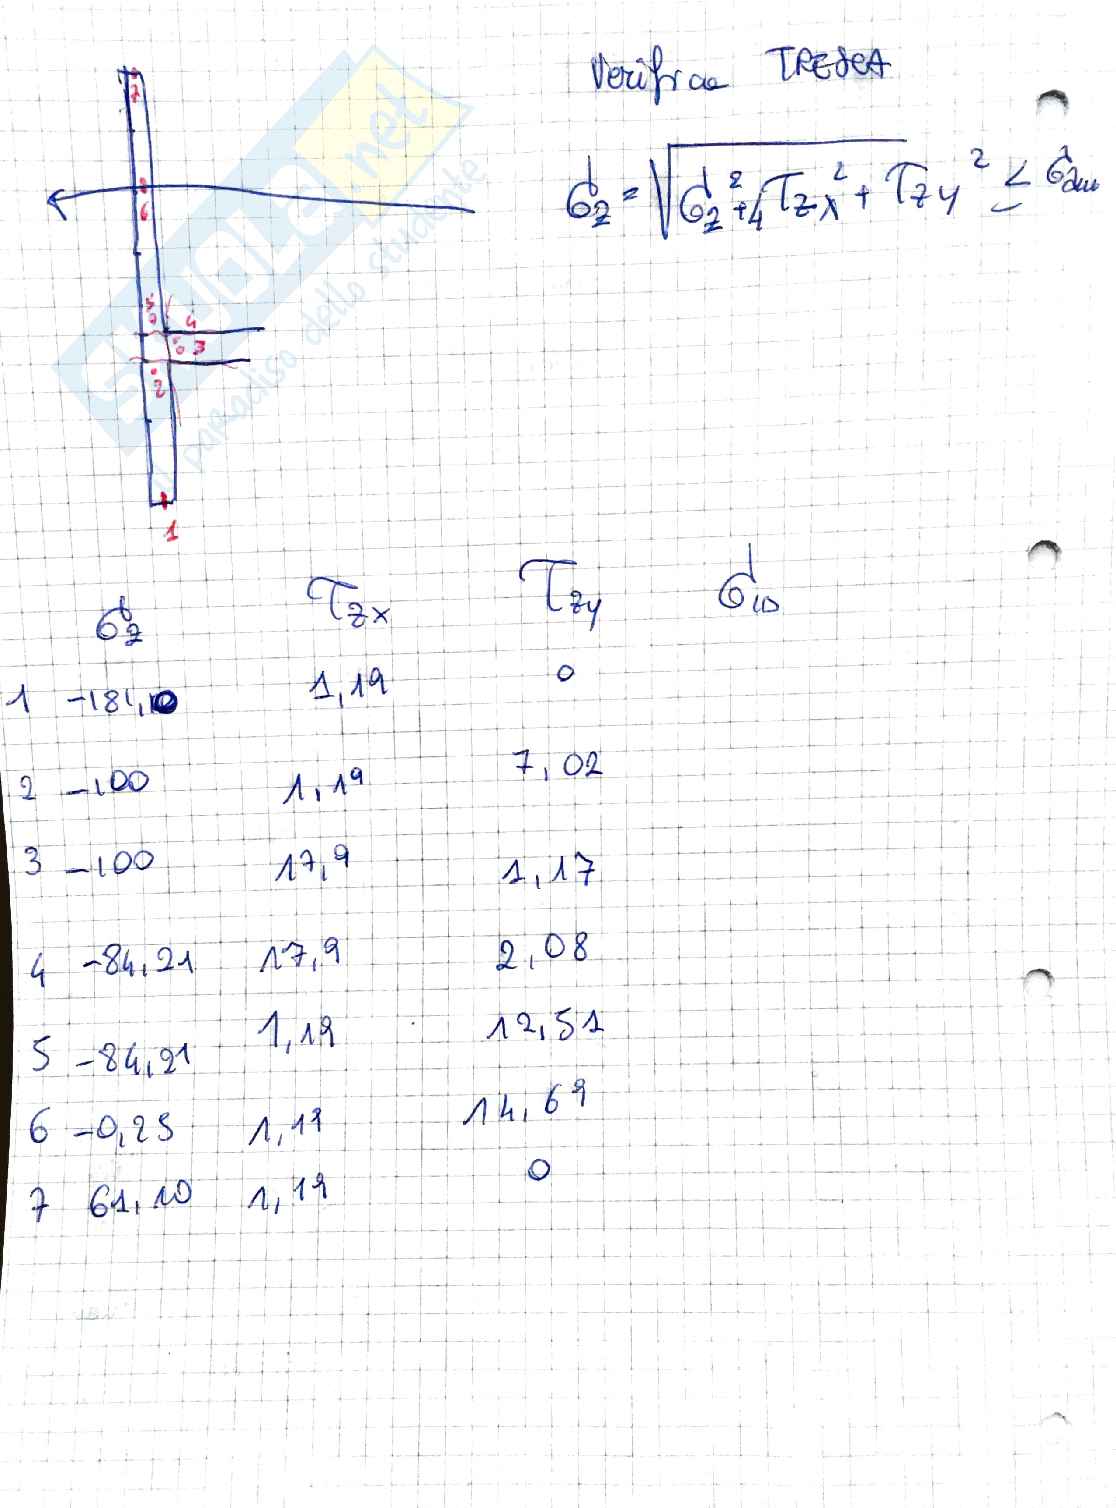 Verifica TRESCA
σz = √σz²+4τzx²+τzy² ≤ σam
7
6
5
4
3
2
1
SKUOLA.net
il paradiso dello studente
σz τzx τzy σid
1 -181,10 1,19 0
2 -100 1,19 7,02
3 -100 17,9 1,17
4 -84,21 17,9 2,08
5 -84,21 1,19 12,51
6 -0,25 1,19 14,69
7 61,10 1,19 0